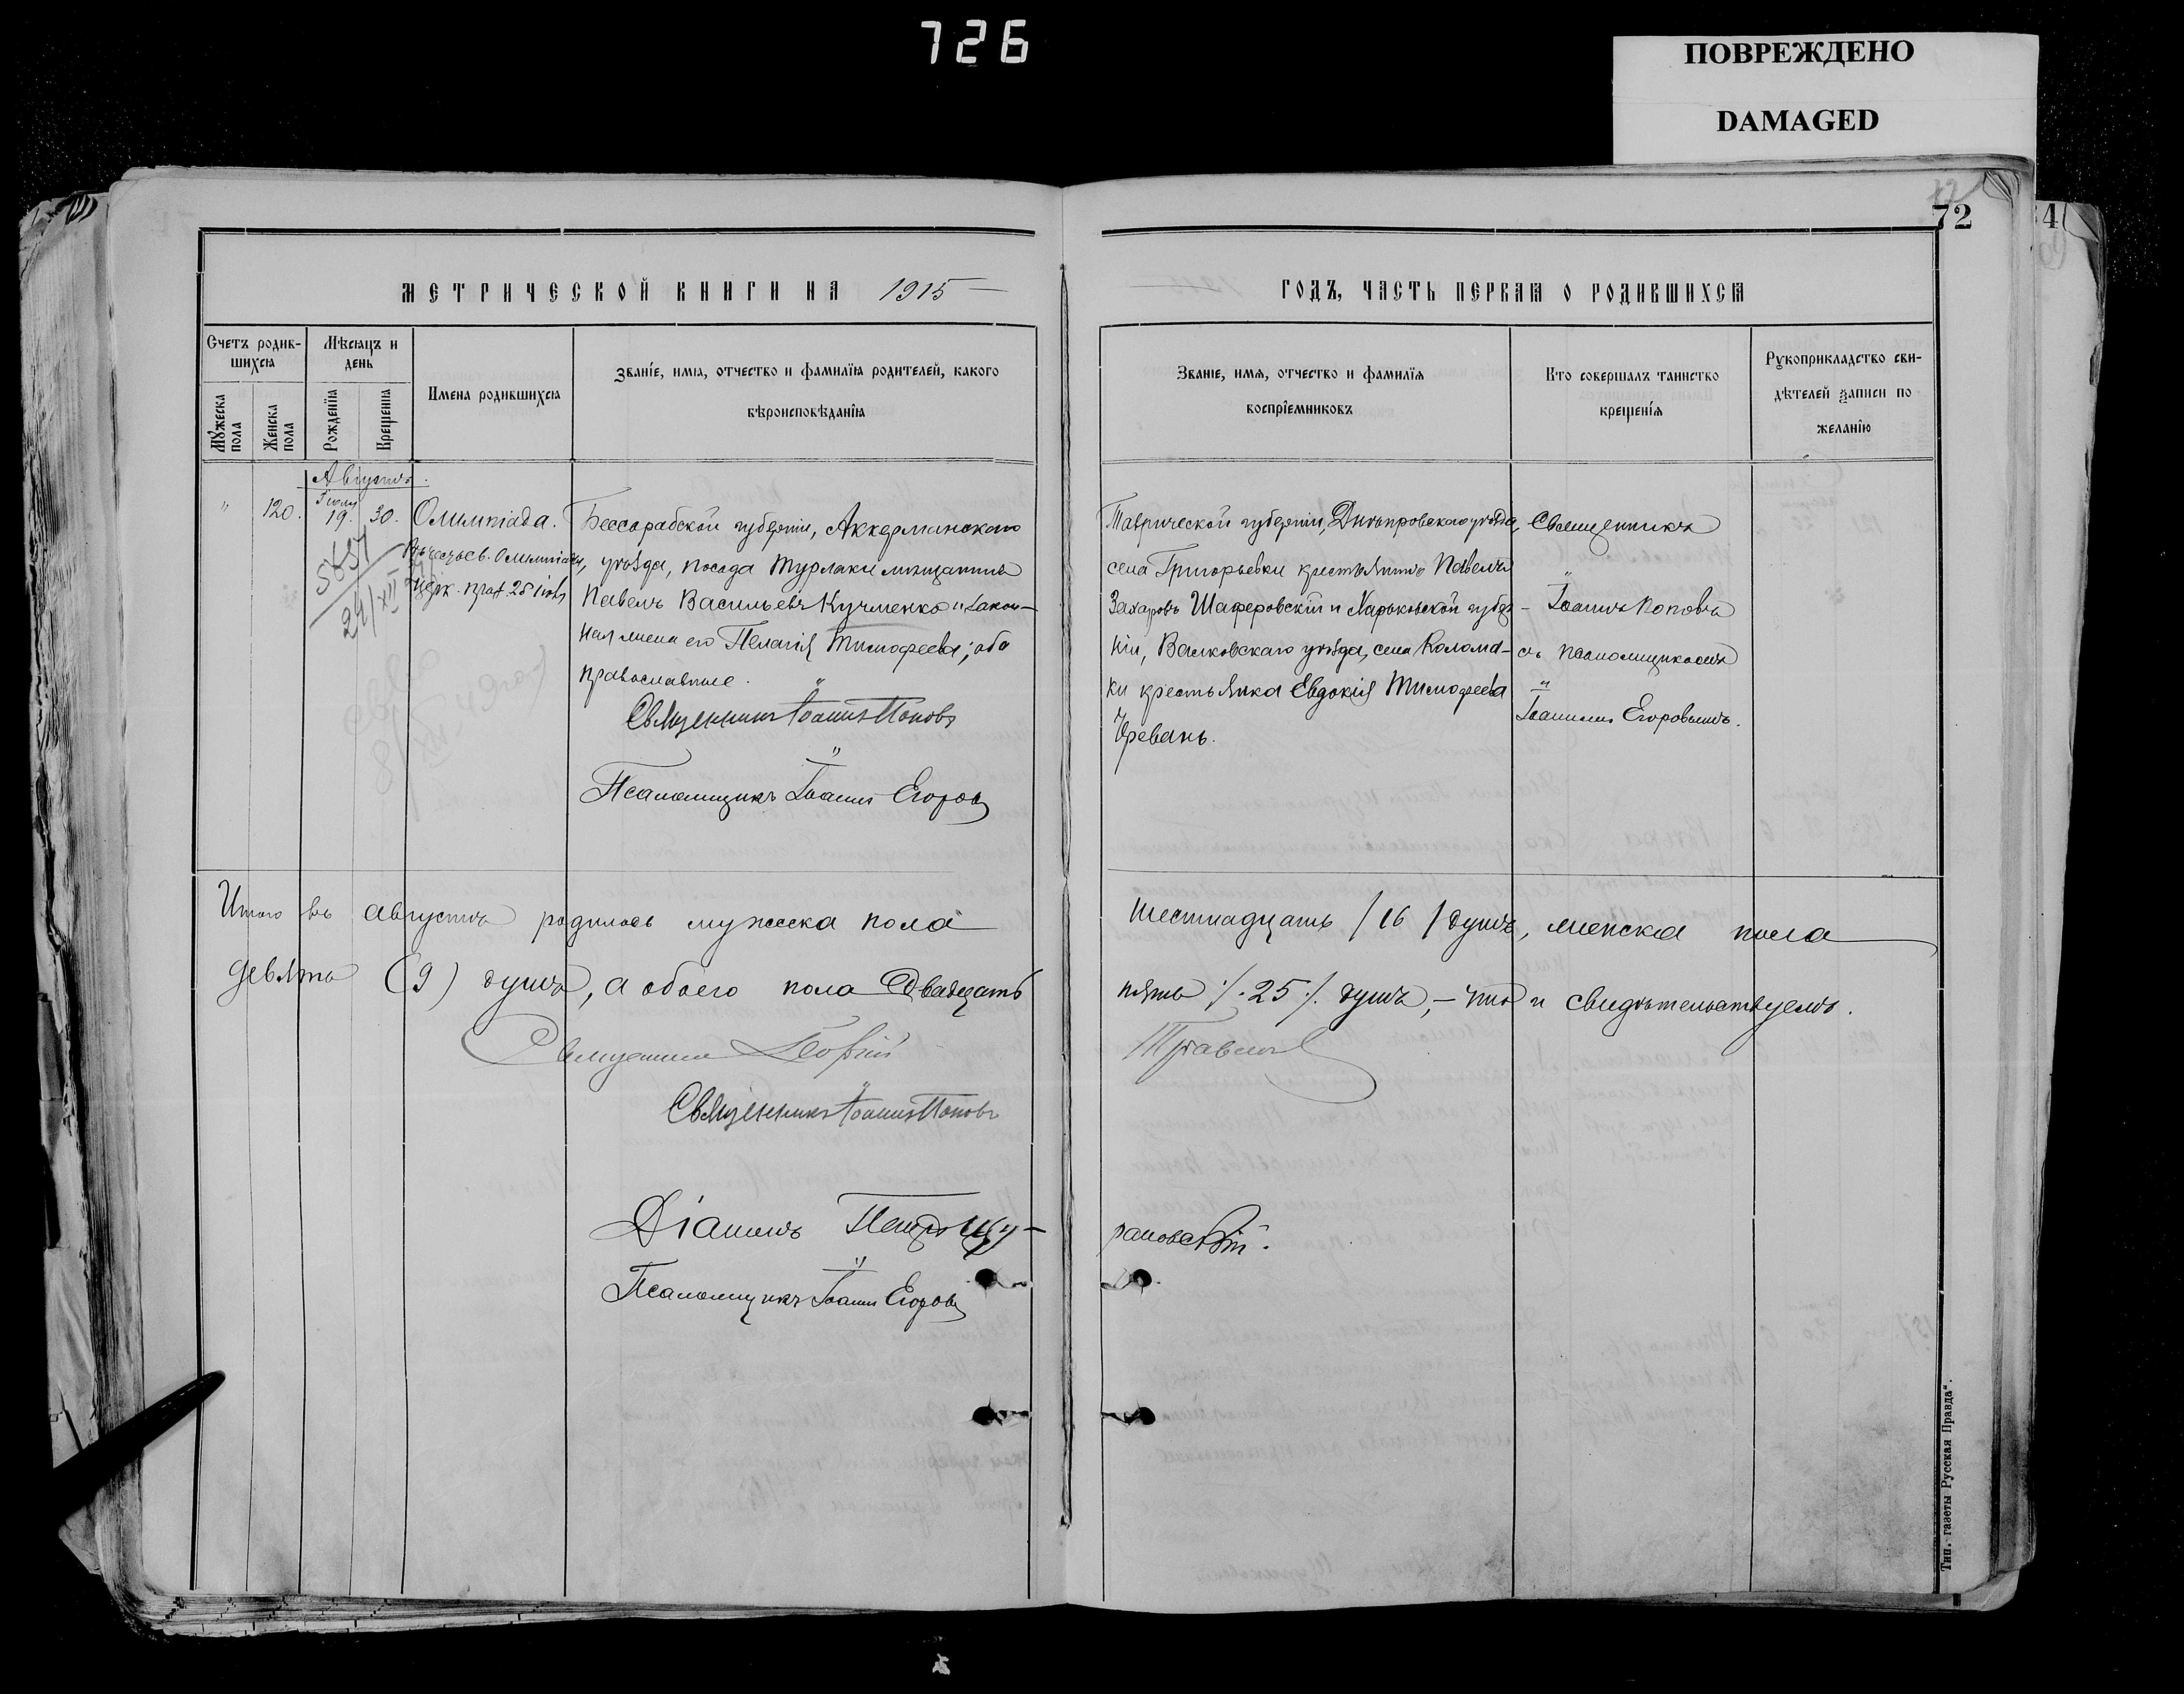 726
ПОВРЕЖДЕНО
DAMAGED
72
4
МЕТРИЧЕСКОЙ КНИГИ НА 1915
ГОДЪ, ЧАСТЬ ПЕРВАЯ О РОДИВШИХСЯ
Счетъ родив-
шихся
Мужеска пола
Женска пола
Мѣсяцъ и
день
Рожденїя
Крещенїя
Имена родившихся
Званїе, имя, отчество и фамилїя родителей, какого
вѣроисповѣданїя
Званїе, имя, отчество и фамилїя
воспрїемниковъ
Кто совершалъ таинство
крещенїя
Рукоприкладство сви-
дѣтелей записи по
желанїю
Августъ.
"
120.
Іюля
19.
30.
5637
24/XII
Олимпіада.
Въ честь св. Олимпіады,
праз. 25 іюля
Бессарабской губерніи, Аккерманскаго
уѣзда, посада Турлаки мѣщанинъ
Павелъ Васильевъ Кучменко и закон-
ная жена его Пелагія Тимофеева; оба
православные.
Священникъ Іоаннъ Поповъ
Псаломщикъ Іоаннъ Егоровъ
Таврической губерніи, Днѣпровскаго уѣзда,
села Григорьевки крестьянинъ Павелъ
Захаровъ Шаферовскій и Харьковской губер-
ніи, Валковскаго уѣзда, села Колома-
ки крестьянка Евдокія Тимофеева
Священникъ
Іоаннъ Поповъ
съ псаломщикомъ
Іоанномъ Егоровымъ.
Итого въ августѣ родилось мужеска пола
шестнадцать /16/ душъ, женска пола
девять (9) душъ, а обоего пола двадцать
пять /.25./ душъ, – что и свидѣтельствуемъ.
Священникъ Георгій
Священникъ Іоаннъ Поповъ
Діаконъ Петръ Щу-
рановскій.
Псаломщикъ Іоаннъ Егоровъ
Тип. газеты Русская Правда“.